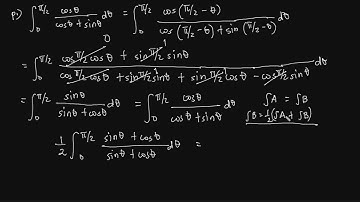 P₂) ∫₀^{π/2} cosθ/(cosθ + sinθ) dθ = ∫₀^{π/2} cos(π/2 - θ)/(cos(π/2 - θ) + sin(π/2 - θ)) dθ
= ∫₀^{π/2} (cosπ/2 cosθ + sinπ/2 sinθ)/(cosπ/2 cosθ + sinπ/2 sinθ + sinπ/2 cosθ - cosπ/2 sinθ) dθ
= ∫₀^{π/2} sinθ/(sinθ + cosθ) dθ = ∫₀^{π/2} cosθ/(cosθ + sinθ) dθ
∫A = ∫B
∫B = ½(∫A + ∫B)
1/2 ∫₀^{π/2} (sinθ + cosθ)/(sinθ + cosθ) dθ =